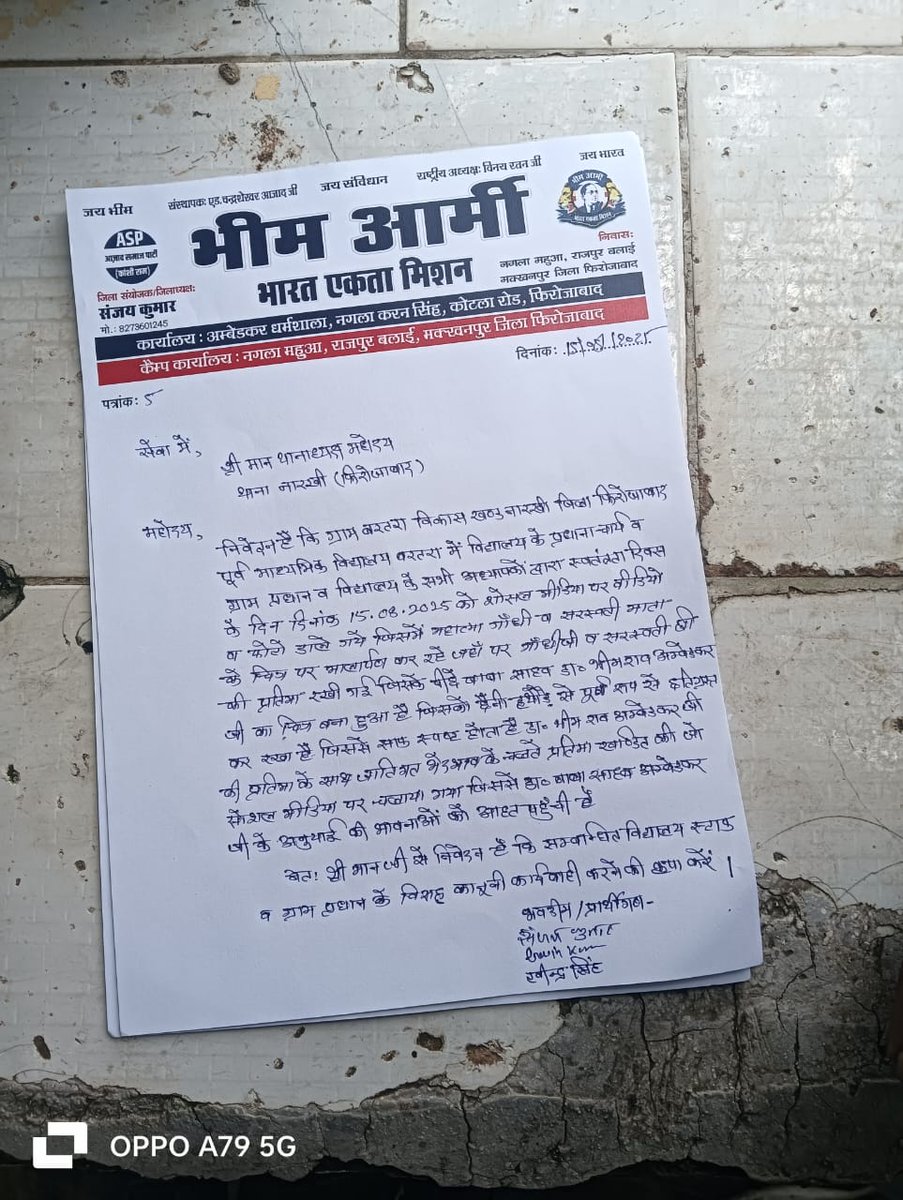 जय भीम
संस्थापक: एड. चन्द्रशेखर आजाद जी
जय संविधान
राष्ट्रीय अध्यक्ष: विनय रतन जी
जय भारत
ASP
आज़ाद समाज पार्टी
(कांशी राम)
भीम आर्मी
भीम आर्मी
भारत एकता मिशन
भारत एकता मिशन
जिला संयोजक/जिलाध्यक्ष:
संजय कुमार
मो.: 8273601245
निवास:
नगला महुआ, राजपुर बलाई
मक्खनपुर जिला फिरोजाबाद
कार्यालय : अम्बेडकर धर्मशाला, नगला करन सिंह, कोटला रोड, फिरोजाबाद
कैम्प कार्यालय : नगला महुआ, राजपुर बलाई, मक्खनपुर जिला फिरोजाबाद
पत्रांक: 5
दिनांक: 15/08/2025
सेवा में,
श्री मान थानाध्यक्ष महोदय
थाना नारखी (फिरोजाबाद)
महोदय,
निवेदन है कि ग्राम बरतरा विकास खण्ड नारखी जिला फिरोजाबाद
पूर्व माध्यमिक विद्यालय बरतरा में विद्यालय के प्रधानाचार्य व
ग्राम प्रधान व विद्यालय के सभी अध्यापकों द्वारा स्वतंत्रता दिवस
के दिन दिनांक 15.08.2025 को शोसल मीडिया पर वीडियो
व फोटो डाले गये जिसमें महात्मा गाँधी व सरस्वती माता
के चित्र पर माल्यार्पण कर रहे जहाँ पर गाँधीजी व सरस्वती जी
की प्रतिमा रखी गई जिसके पीछे बाबा साहब डा० भीमराव अम्बेडकर
जी का चित्र बना हुआ है जिसको छैनी हथौड़े से पूर्ण रूप से क्षतिग्रस्त
कर रखा है जिससे साफ स्पष्ट होता है डा० भीम राव अम्बेडकर जी
की प्रतिमा के साथ जातिगत भेदभाव के चलते प्रतिमा खण्डित की जो
सोशल मीडिया पर चलाया गया जिससे डा० बाबा साहब अम्बेडकर
जी के अनुयाई की भावनाओं को आहत पहुँची है
अतः श्री मान जी से निवेदन है कि सम्बन्धित विद्यालय स्टाफ
व ग्राम प्रधान के विरुद्ध कानूनी कार्यवाही करने की कृपा करें।
भवदीय / प्रार्थीगण-
रवीन्द्र सिंह
OPPO A79 5G